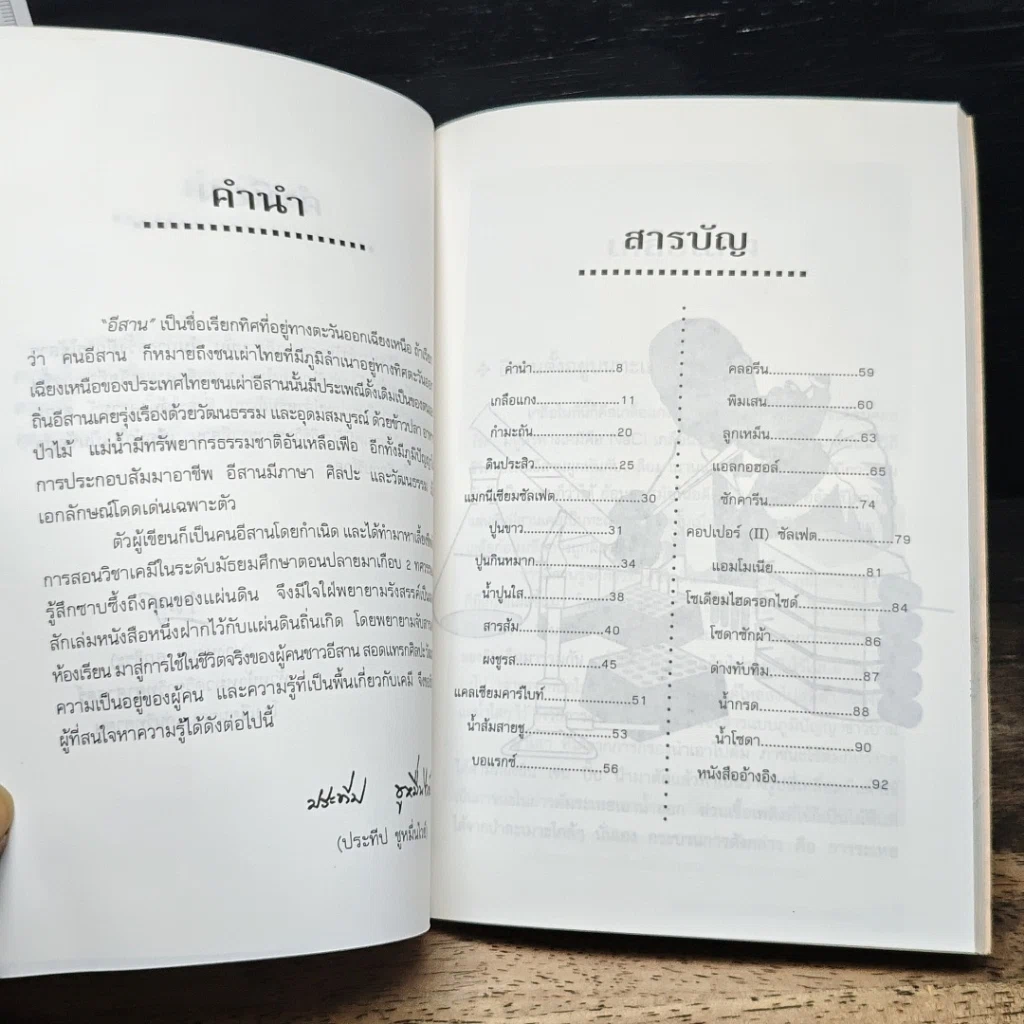 คำนำ
"อีสาน" เป็นชื่อเรียกทิศที่อยู่ทางตะวันออกเฉียงเหนือ
ว่า คนอีสาน ก็หมายถึงชนเผ่าไทยที่มีภูมิลำเนาอยู่ทางทิศตะวันออก
เฉียงเหนือของประเทศไทยชนเผ่าอีสานนั้นมีประเพณีดั้งเดิมเป็นของ
ถิ่นอีสานเคยรุ่งเรืองด้วยวัฒนธรรม และอุดมสมบูรณ์ ด้วยข้าวปลา
ป่าไม้ แม่น้ำมีทรัพยากรธรรมชาติอันเหลือเฟือ อีกทั้งมี
การประกอบสัมมาอาชีพ อีสานมีภาษา ศิลปะ และวัฒนธรรม
เอกลักษณ์โดดเด่นเฉพาะตัว
ตัวผู้เขียนก็เป็นคนอีสานโดยกำเนิด และได้ทำมาหาเลี้ยง
การสอนวิชาเคมีในระดับมัธยมศึกษาตอนปลายมาเกือบ 2
รู้สึกซาบซึ้งถึงคุณของแผ่นดิน จึงมีใจใฝ่พยายามรังสรรค์
สักเล่มหนังสือหนึ่งฝากไว้กับแผ่นดินถิ่นเกิด โดยพยายาม
ห้องเรียน มาสู่การใช้ในชีวิตจริงของผู้คนชาวอีสาน สอดแทรกศิลปะ
ความเป็นอยู่ของผู้คน และความรู้ที่เป็นพื้นเกี่ยวกับเคมี
ผู้ที่สนใจหาความรู้ได้ดังต่อไปนี้
ประทีป
(ประทีป
สารบัญ
คำนำ.....................8
เกลือแกง.....................11
กำมะถัน.....................20
ดินประสิว.....................25
แมกนีเซียมซัลเฟต.....................30
ปูนขาว.....................31
ปูนกินหมาก.....................34
น้ำปูนใส.....................38
สารส้ม.....................40
ผงชูรส.....................45
แคลเซียมคาร์ไบท์.....................51
น้ำส้มสายชู.....................53
บอแรกซ์.....................56
คลอรีน.....................59
พิมเสน.....................60
ลูกเหม็น.....................63
แอลกอฮอล์.....................65
ซักคารีน.....................74
คอปเปอร์ (II) ซัลเฟต.....................79
แอมโมเนีย.....................81
โซเดียมไฮดรอกไซด์.....................84
โซดาซักผ้า.....................86
ด่างทับทิม.....................87
น้ำกรด.....................88
น้ำโซดา.....................90
หนังสืออ้างอิง.....................92